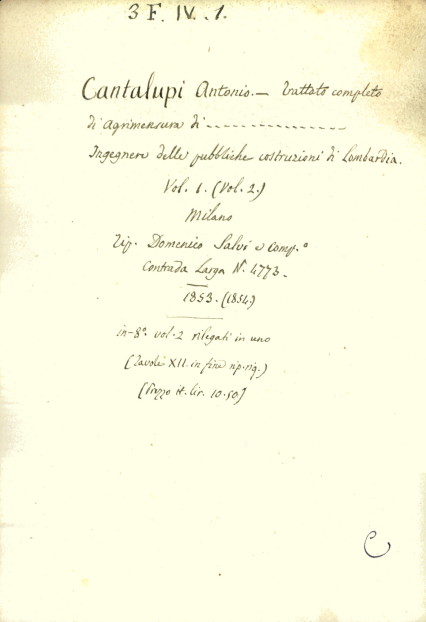 3 F. IV. .1.
Cantalupi Antonio. — Trattato completo
di Agrimensura di --------------------
Ingegnere delle pubbliche costruzioni di Lombardia.
Vol. 1. (Vol. 2.)
Milano
Tip. Domenico Salvi e Comp.º
Contrada Larga Nº. 4773.
1853. (1854.)
in-8º. vol. 2 rilegati in uno
(Tavole XII. in fine rip. rig.)
(Prezzo it. lir. 10.50)
C